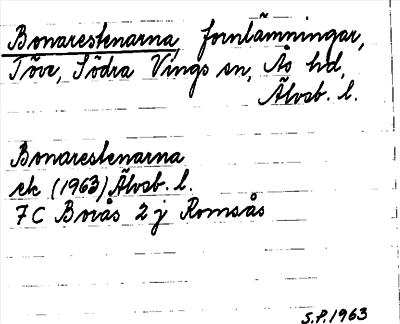 Bonarestenarna, fornlämningar,
Töve, Södra Vings sn, Ås hd,
Älvsb. l.
Bonarestenarna
ek (1963) Älvsb. l.
7C Borås 2 j Romsås
S.P. 1963